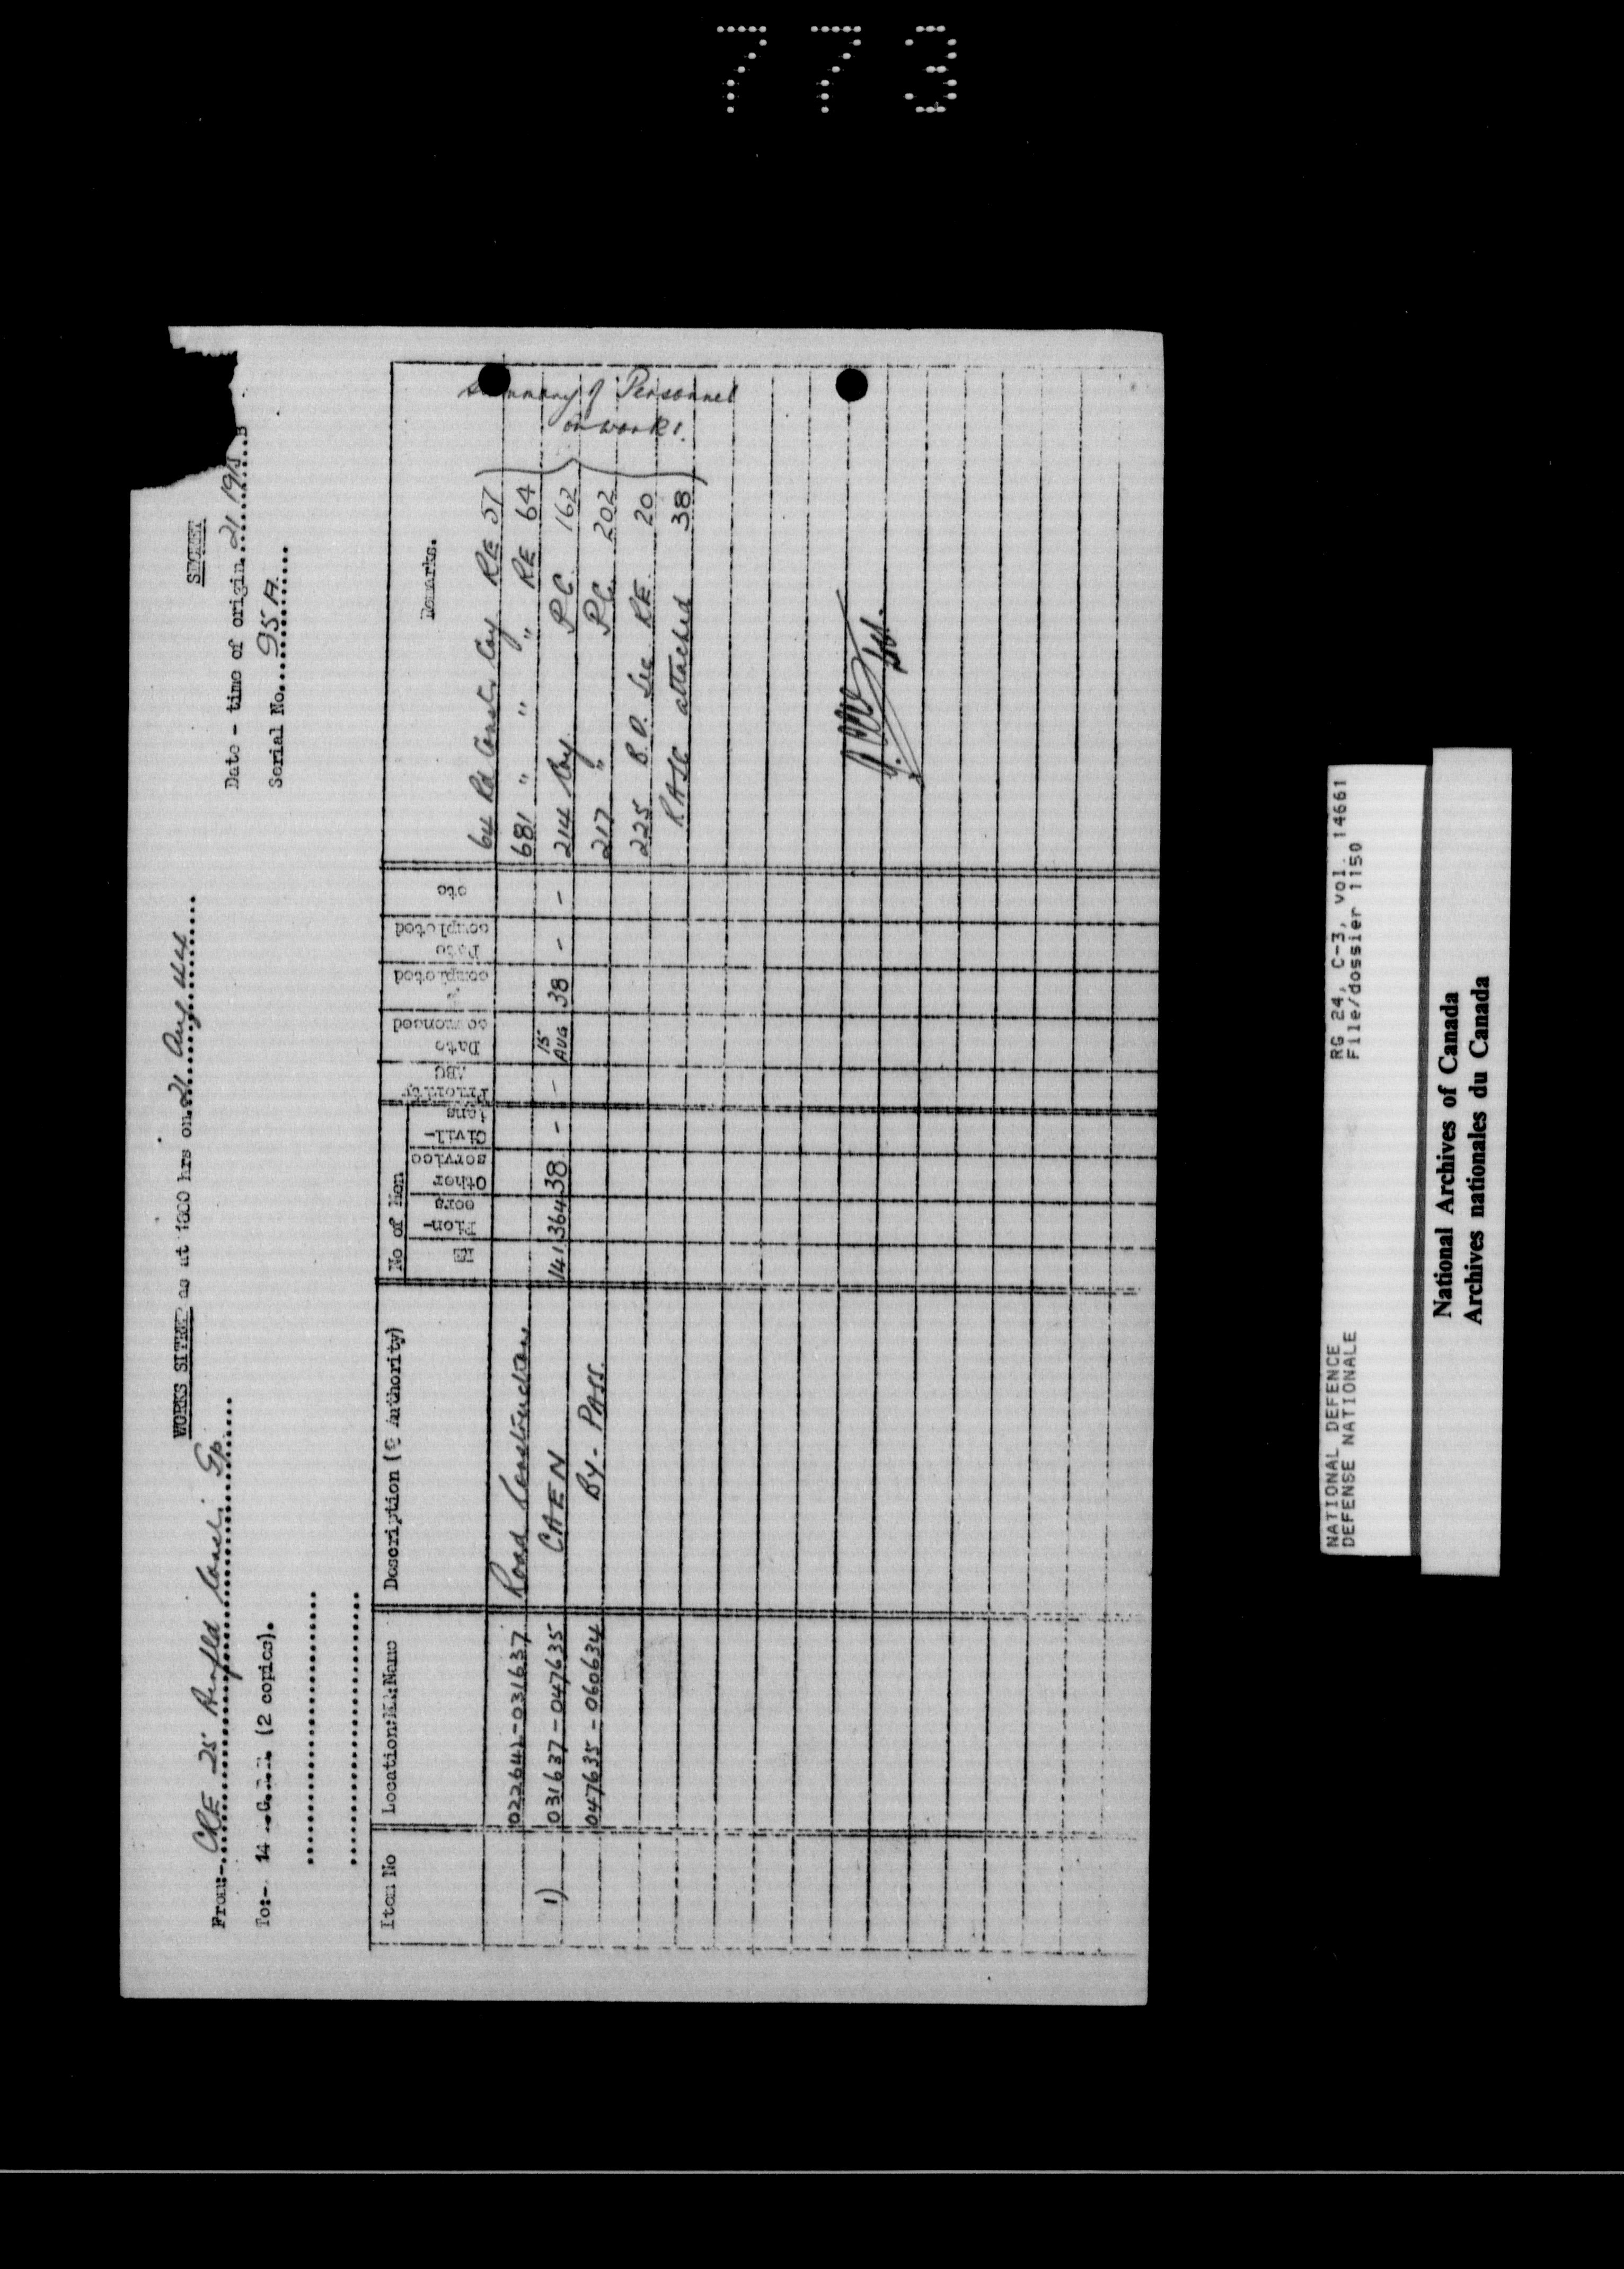 773
SECRET
WORKS SITREP as at 1800 hrs on 21 Aug 44
From:- CRE 25 Airfld Constr. Gp.
Date - time of origin 21 19
To:- 14 (2 copies).
Serial No. 95 A.
Item No
Location: Name
Description ( Authority)
No of Men
RE
Pion-
eers
Other
service
Civil-
ians
Priority
ABC
Date
commenced
%
completed
Date
completed
etc
Remarks.
022642-031637 Road Construction
1) 031637-047635 CAEN 141 364 38 - - 15 AUG 38 - -
047635-060634 BY-PASS.
64 Rd Constr. Coy RE 57
681 " " " RE 64
214 Coy PC 162
217 " PC 202
225 B.D. Sec RE 20
RASC attached 38
Summary of Personnel
on work 1.
NATIONAL DEFENCE RG 24, C-3, vol. 14661
DEFENSE NATIONALE File/dossier 1150
National Archives of Canada
Archives nationales du Canada